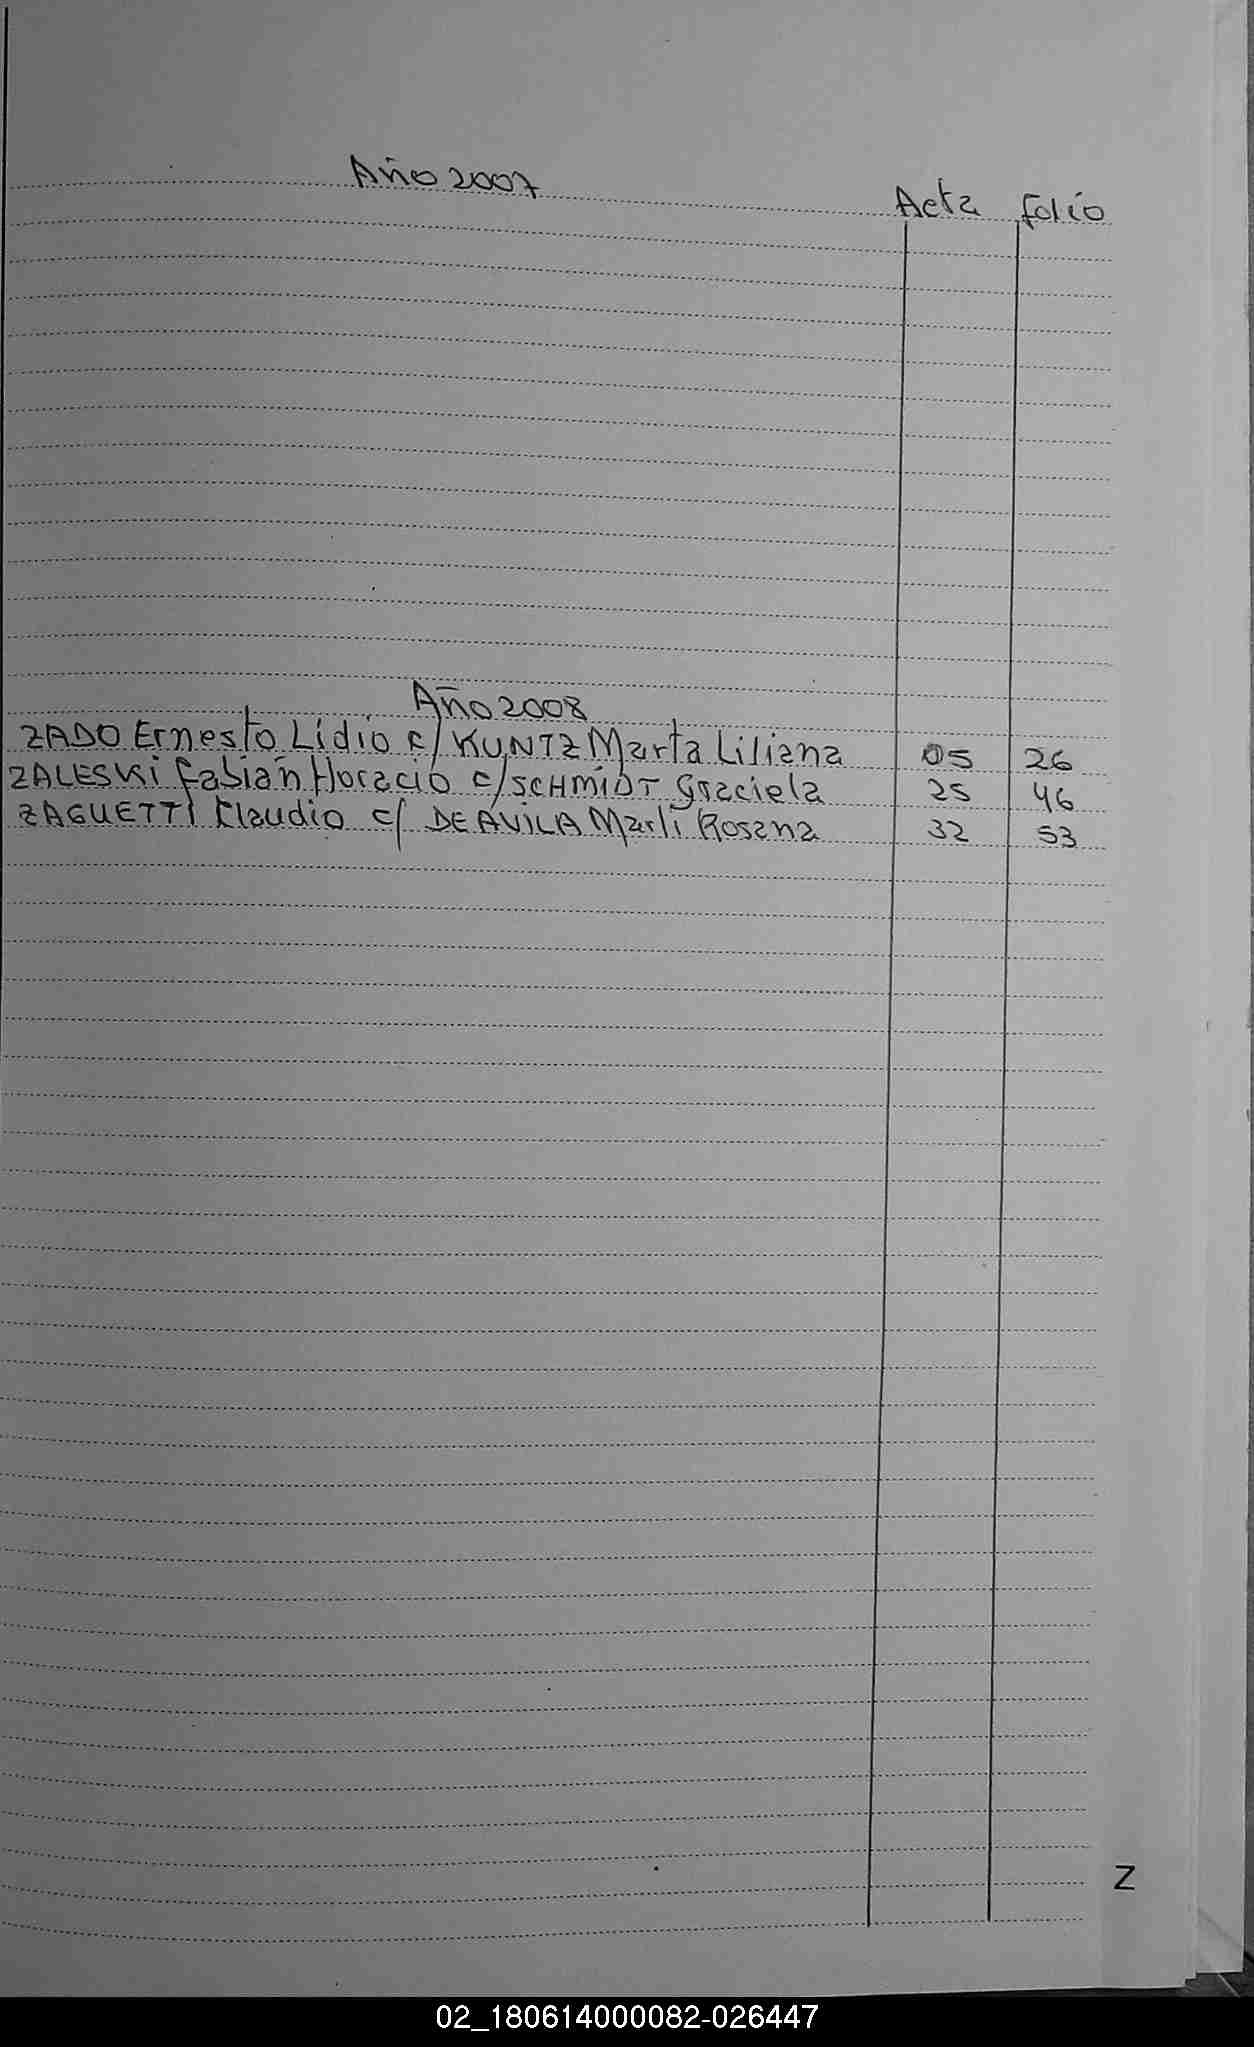 Año 2007
Acta folio
Año 2008
ZADO Ernesto Lidio c/ KUNTZ Marta Liliana 05 26
ZALESKI fabian Horacio c/ SCHMIDT Graciela 25 46
ZAGUETTI Claudio c/ DE AVILA Marli Rosana 32 53
Z
02_180614000082-026447